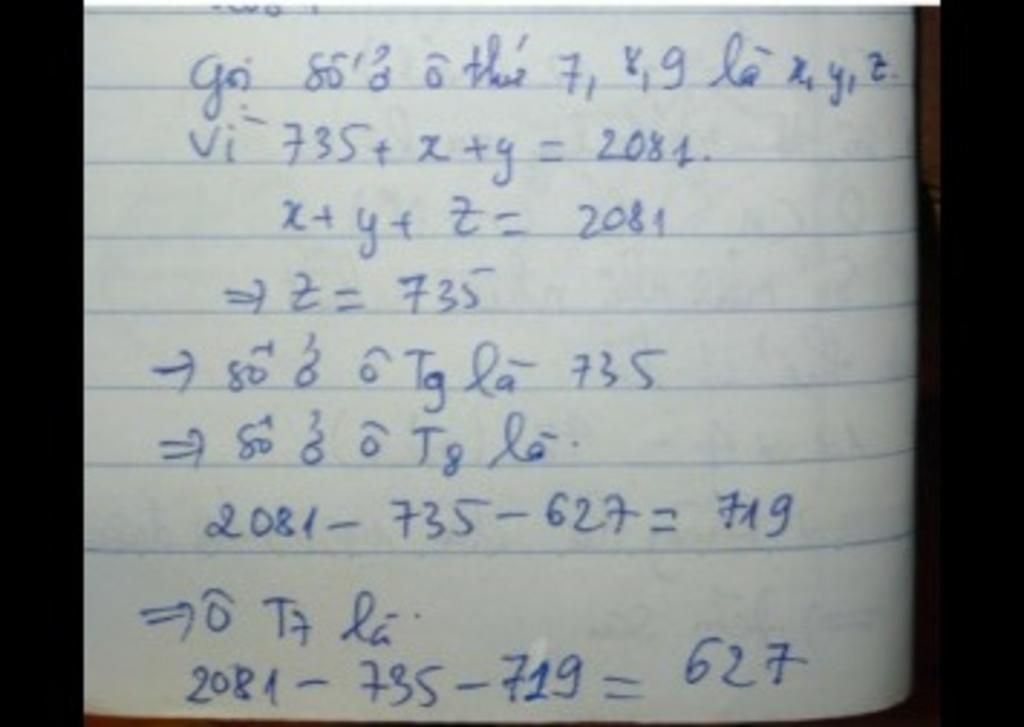 Gọi số ở ô thứ 7, 8, 9 là x, y, z.
Vì 735 + x + y = 2081.
x + y + z = 2081
⇒ z = 735
→ số ở ô T9 là 735
⇒ số ở ô T8 là.
2081 - 735 - 627 = 719
⇒ Ô T7 là.
2081 - 735 - 719 = 627